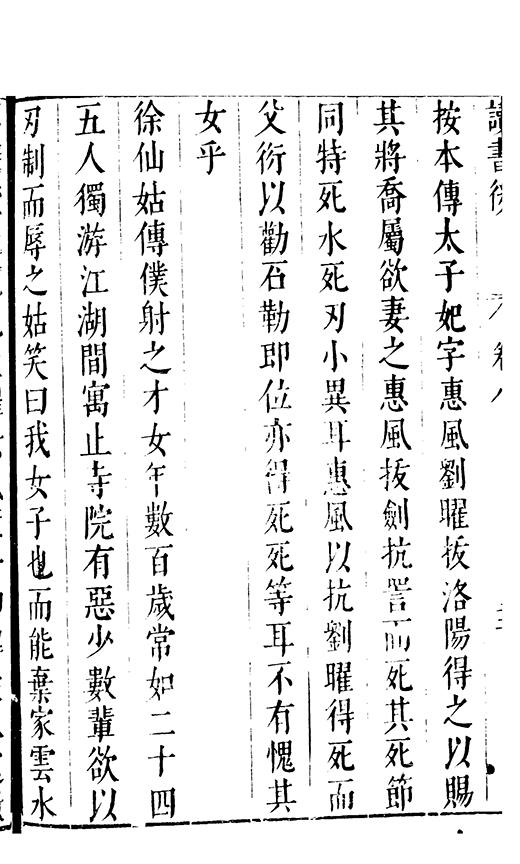 讀書後 卷八
按本傳太子妃字惠風劉曜拔洛陽得之以賜
其將喬屬欲妻之惠風拔劍抗詈而死其死節
同特死水死刃小異耳惠風以抗劉曜得死而
父衍以勸石勒即位亦得死死等耳不有愧其
女乎
徐仙姑傳僕射之才女年數百歲常如二十四
五人獨游江湖間寓止寺院有惡少數輩欲以
刃制而辱之姑笑曰我女子也而能棄家雲水